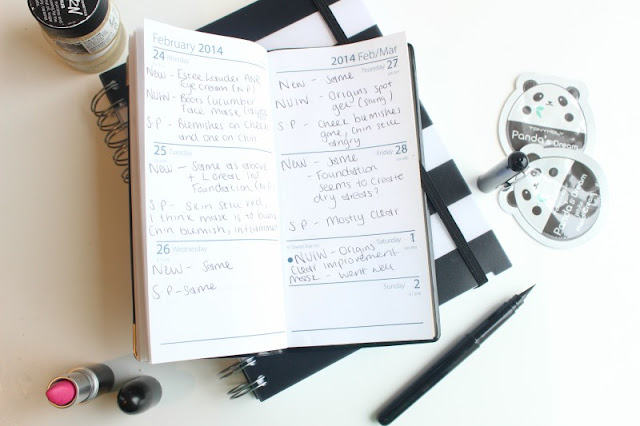 February 2014
24 Monday
NEW - Estee Lauder ANR
Eye cream (N P)
NUIW - Boots Cucumber
Face mask
SP - Blemishes on Cheek
and one on Chin
25 Tuesday
NEW - Same as above
+ L'oreal
Foundation
SP - Skin still red,
I think mask is to
Chin blemish, inflamed
26 Wednesday
NEW - Same
SP - Same
2014 Feb/Mar
Thursday 27
NEW - Same
NUIW - Origins spot
gel (stung)
SP - Cheek blemishes
gone, chin still
angry
Friday 28
NEW - Same
- Foundation
seems to create
dry areas?
SP - Mostly clear
Saturday 1
NUIW - Origins
clear improvement
mask - went well
Sunday 2
Panda's Dream
Panda's Dream